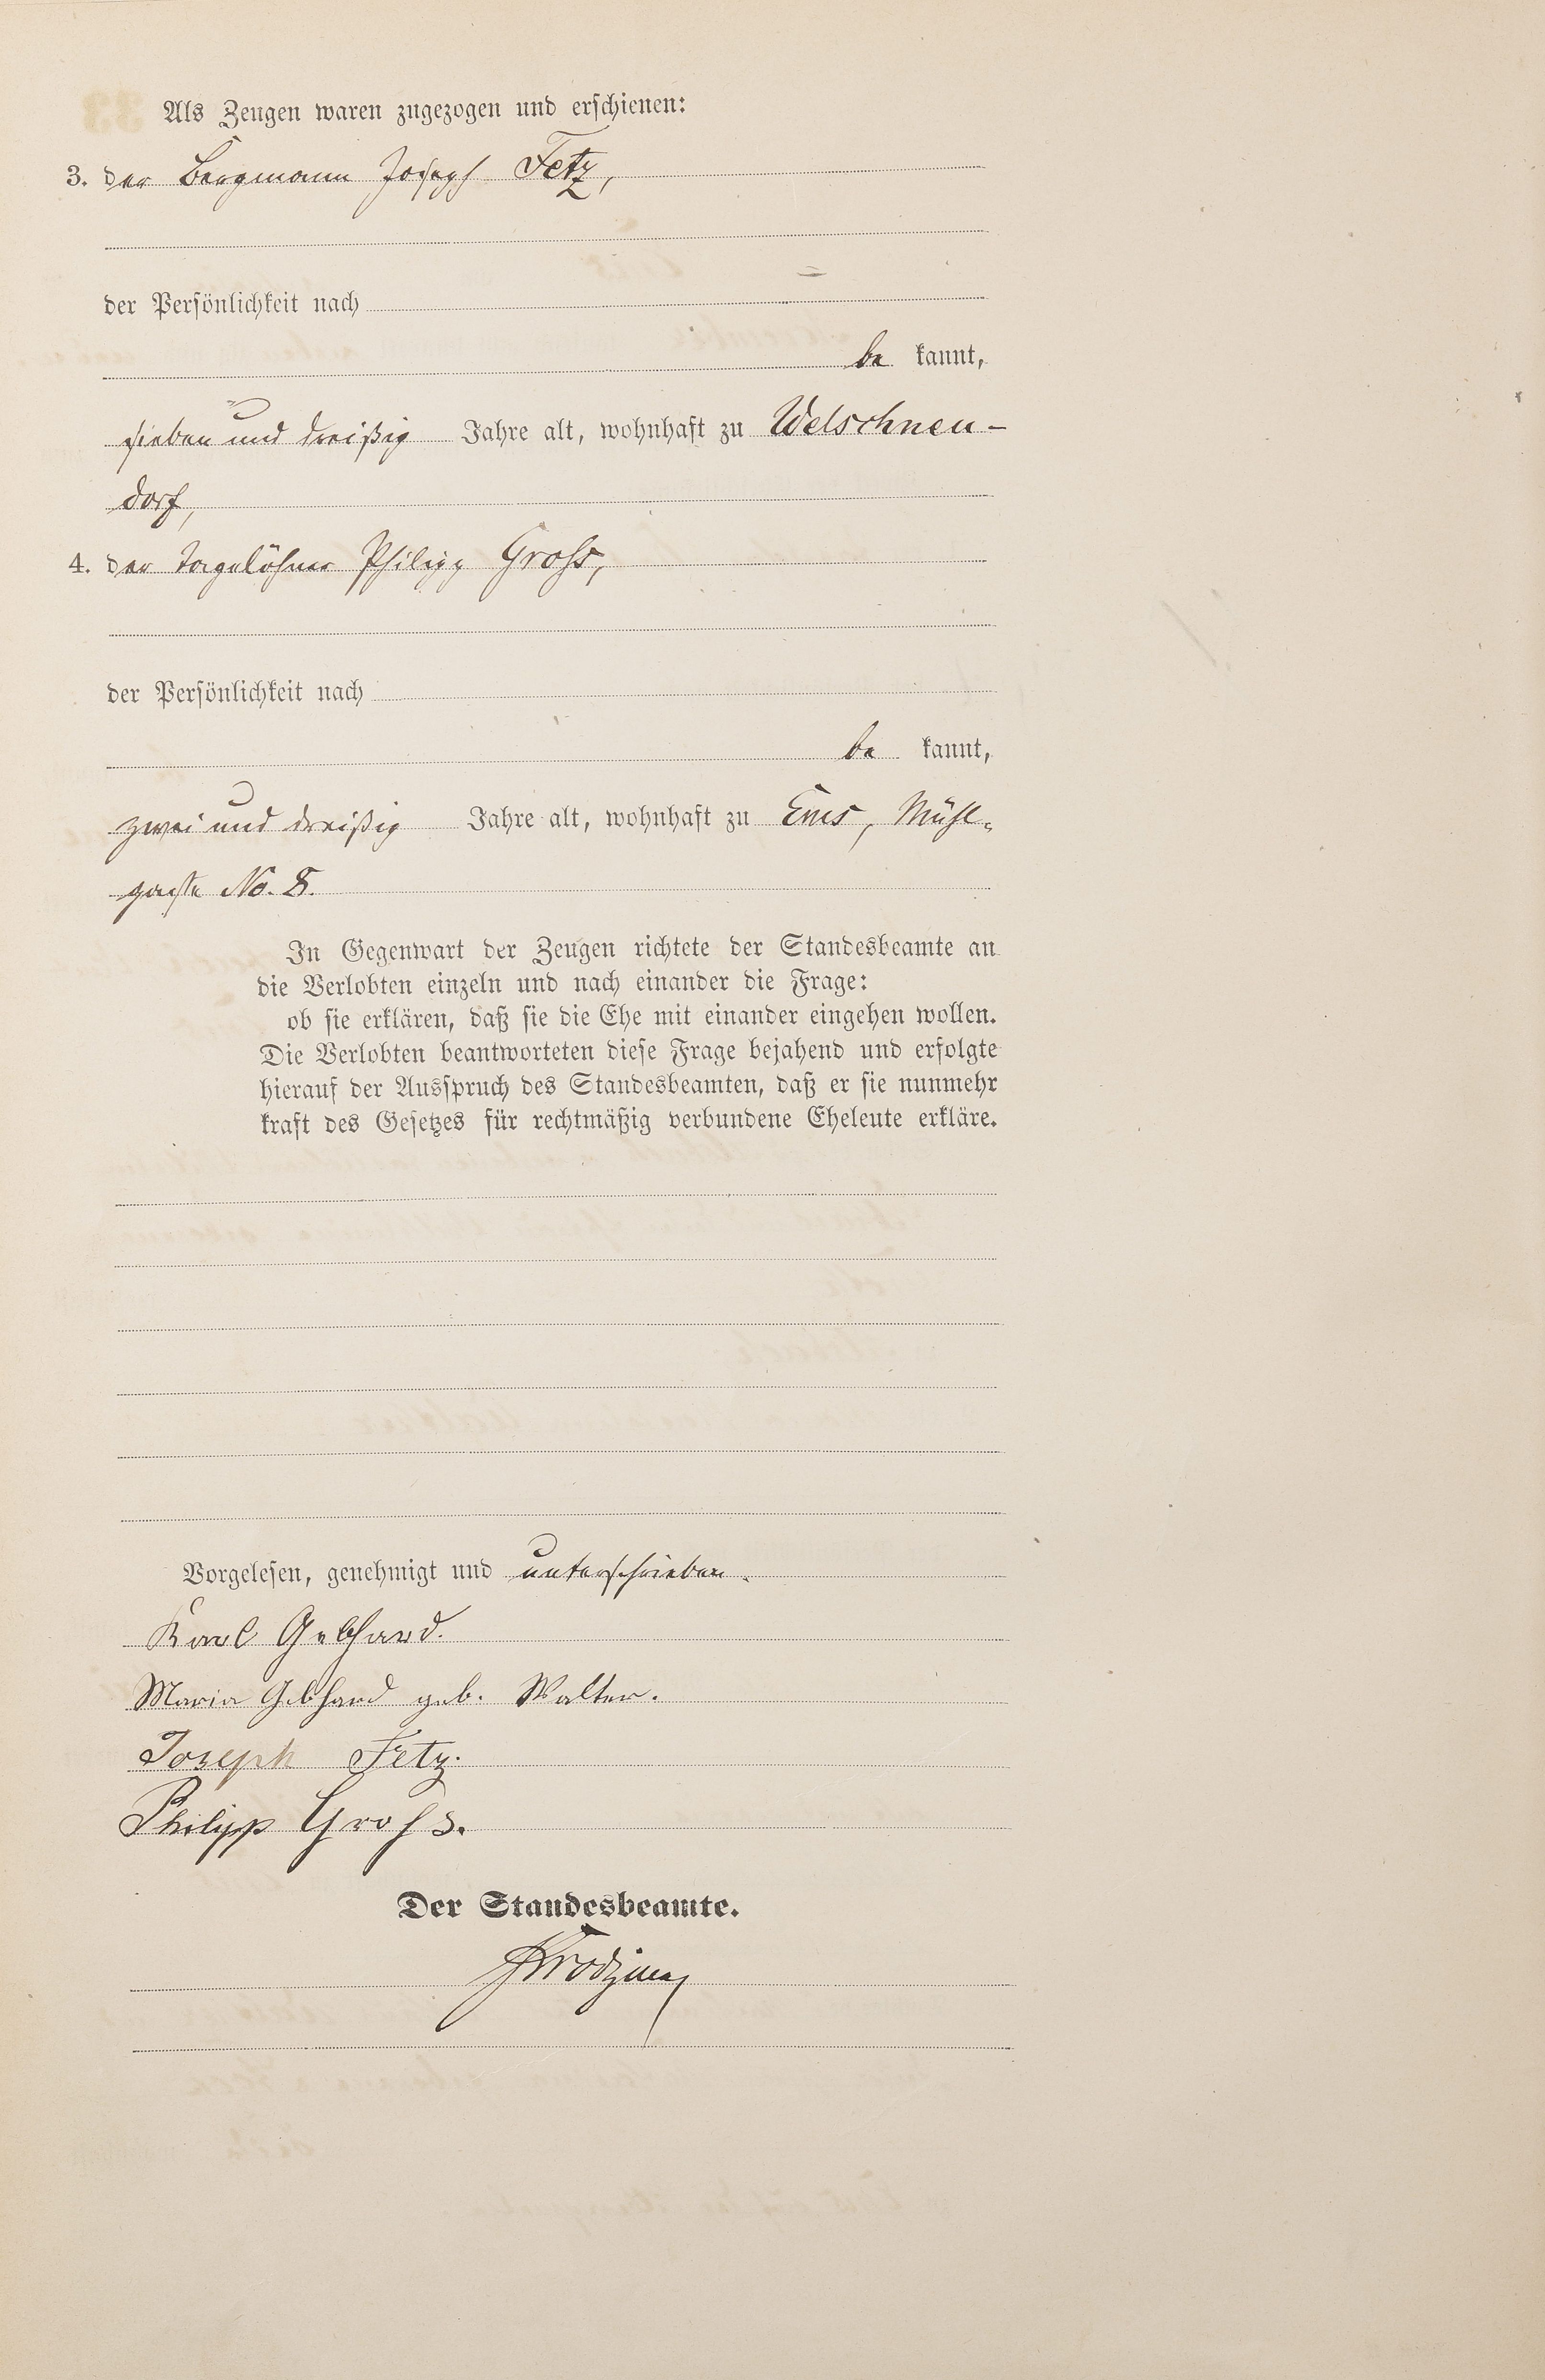 Als Zeugen waren zugezogen und erschienen:
3. der Bergmann Joseph Fetz,
der Persönlichkeit nach
be kannt,
sieben und dreißig Jahre alt, wohnhaft zu Welschneu-
dorf,
4. der Tagelöhner Philipp Groß,
der Persönlichkeit nach
be kannt,
zwei und dreißig Jahre alt, wohnhaft zu Ems, Mühl-
gasse No. 8.
In Gegenwart der Zeugen richtete der Standesbeamte an
die Verlobten einzeln und nach einander die Frage:
ob sie erklären, daß sie die Ehe mit einander eingehen wollen.
Die Verlobten beantworteten diese Frage bejahend und erfolgte
hierauf der Ausspruch des Standesbeamten, daß er sie nunmehr
kraft des Gesetzes für rechtmäßig verbundene Eheleute erkläre.
Vorgelesen, genehmigt und unterschrieben.
Karl Gebhard.
Maria Gebhard geb. Walter.
Joseph Fetz.
Philipp Groſs.
Der Standesbeamte.